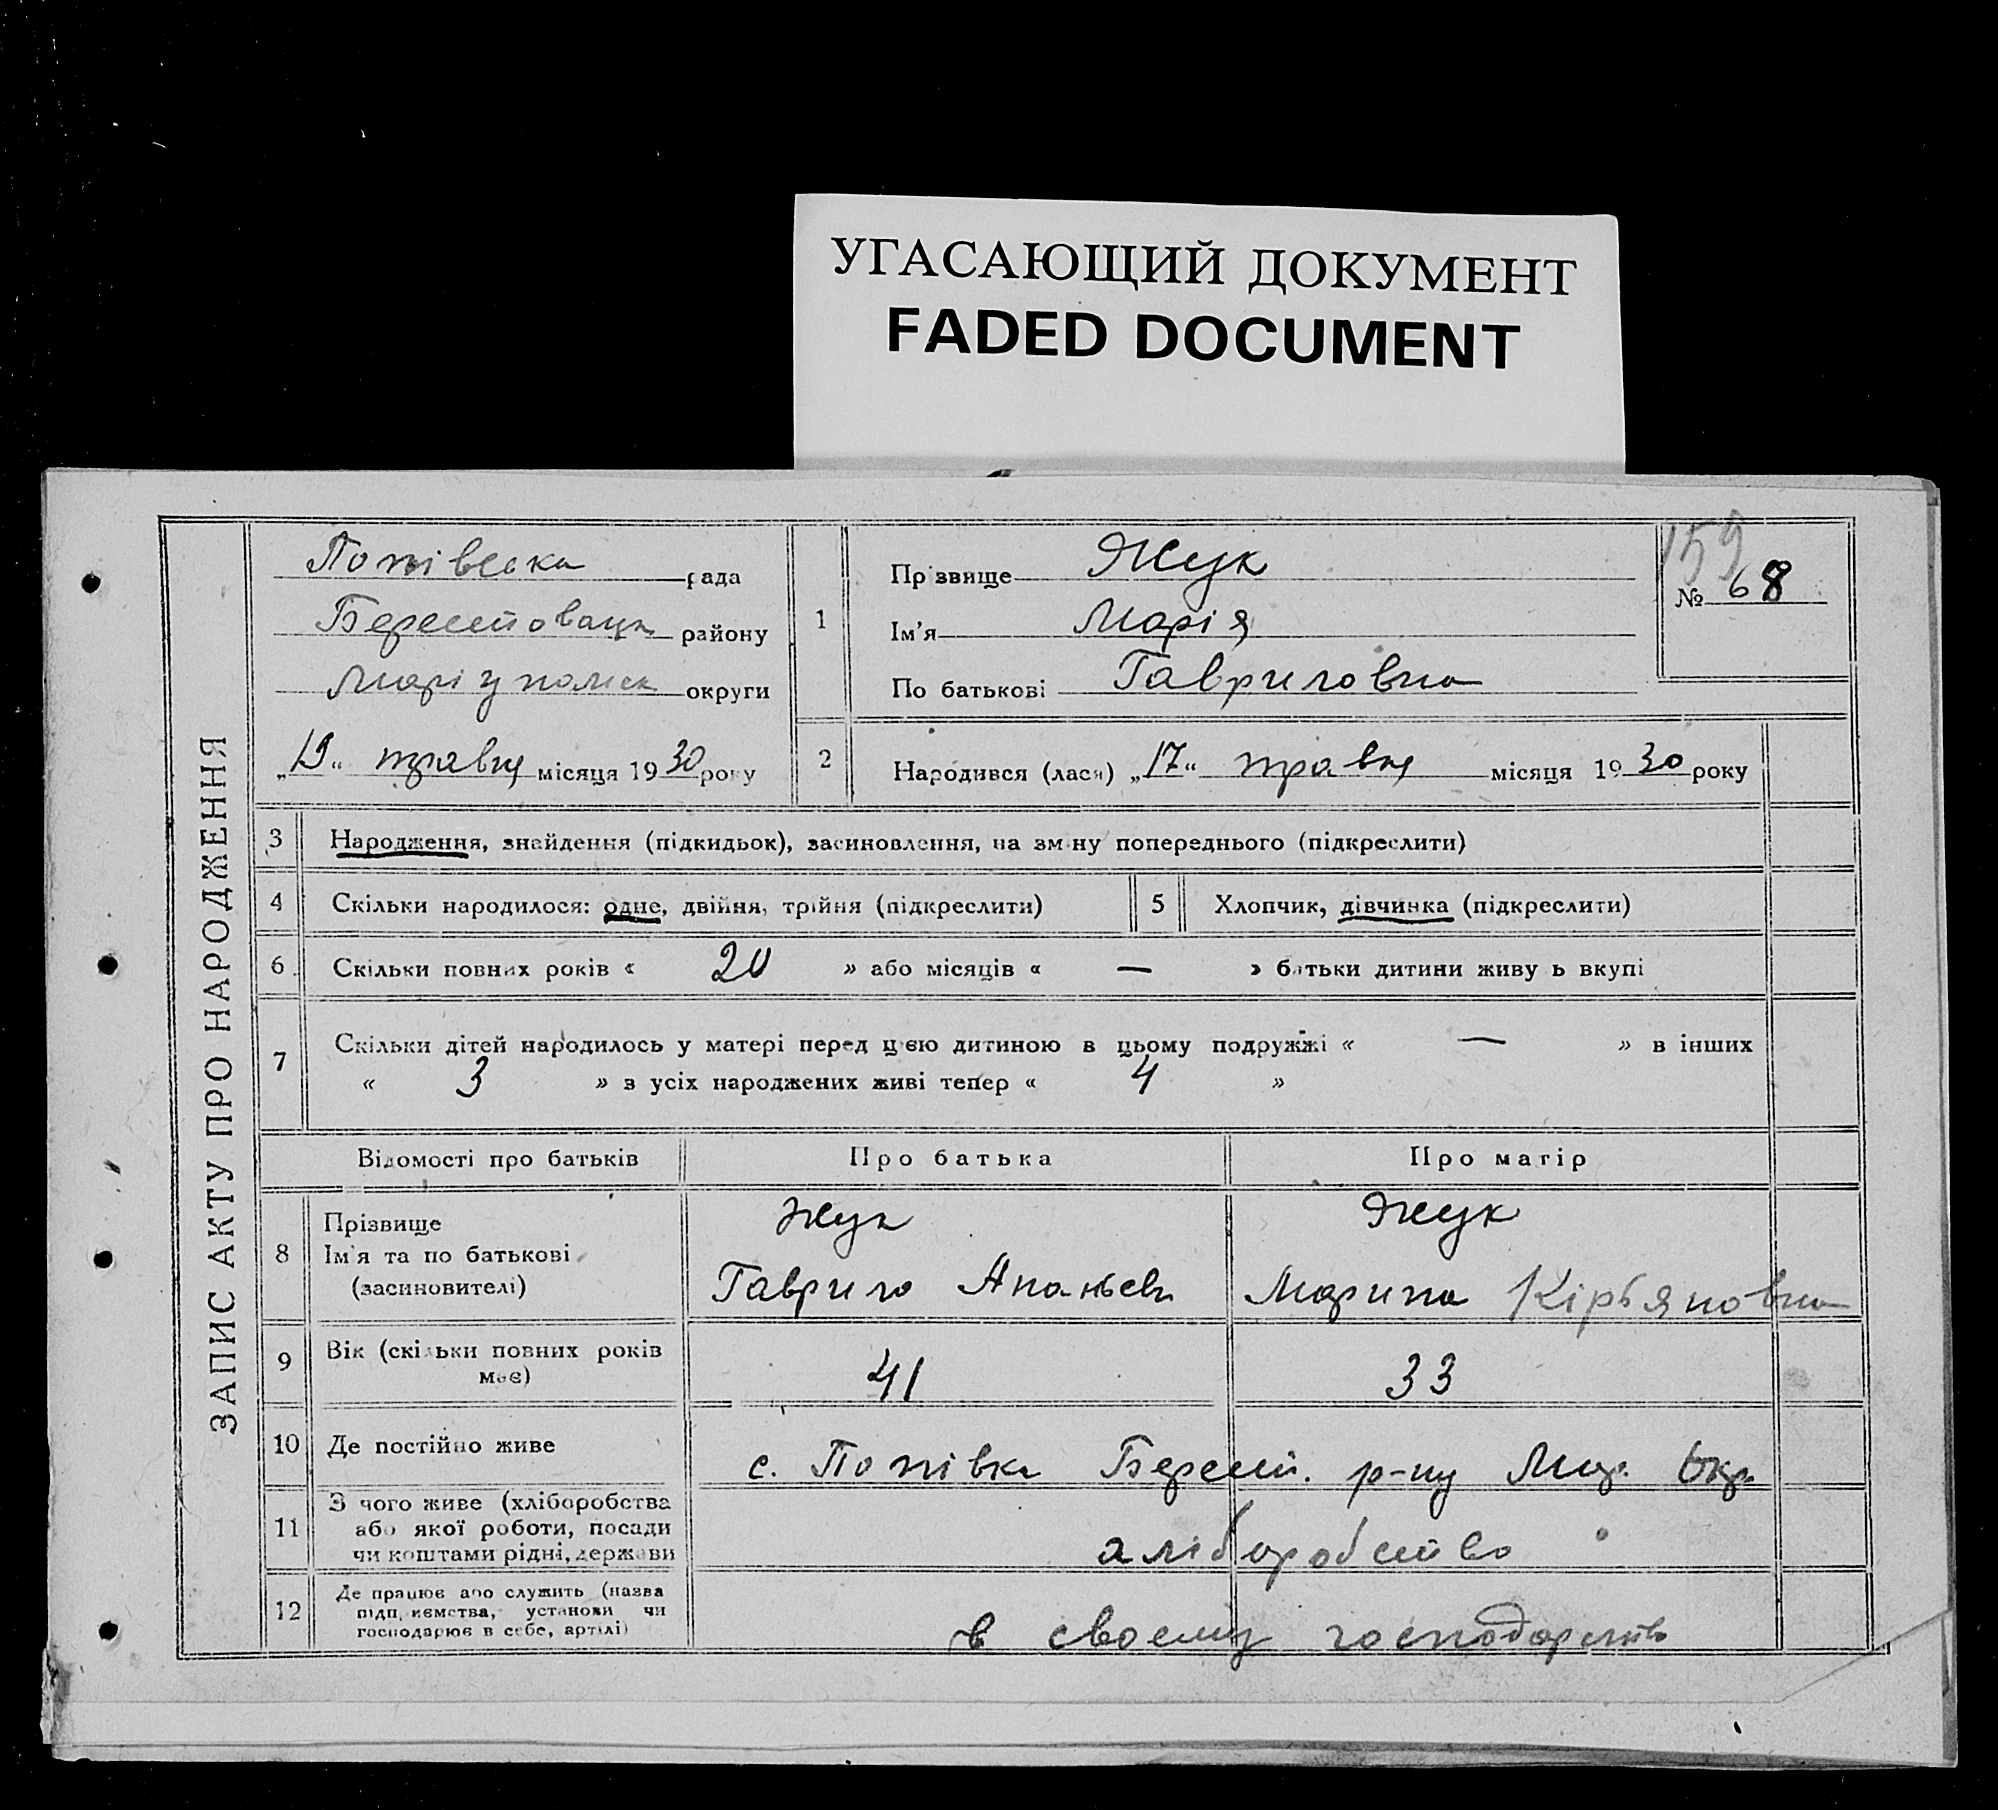 УГАСАЮЩИЙ ДОКУМЕНТ
FADED DOCUMENT
ЗАПИС АКТУ ПРО НАРОДЖЕННЯ
Попівська рада
Берестовацк району
Маріупольск округи
„19“ травня місяця 1930 року
1
Прізвище Жук
Ім'я Марія
По батькові Гавриловна
159
№ 68
2 Народився (лася) „17“ травня місяця 1930 року
3 Народження, знайдення (підкидьок), засиновлення, на зміну попереднього (підкреслити)
4 Скільки народилося: одне, двійня, трійня (підкреслити)
5 Хлопчик, дівчинка (підкреслити)
6 Скільки повних років « 20 » або місяців « — » батьки дитини живуть вкупі
7 Скільки дітей народилось у матері перед цією дитиною в цьому подружжі « — » в інших
« 3 » з усіх народжених живі тепер « 4 »
Відомості про батьків Про батька Про матір
8 Прізвище
Ім'я та по батькові
(засиновителі)
Жук
Гаврило Ананьєв
Жук
Марина Кірьяновна
9 Вік (скільки повних років
має)
41 33
10 Де постійно живе
с. Попівка Берест. р-ну Мар. Окр.
11 З чого живе (хліборобства
або якої роботи, посади
чи коштами рідні, держави
хліборобство
12 Де працює або служить (назва
підприємства, установи чи
господарює в себе, артілі)
в своєму господарстві